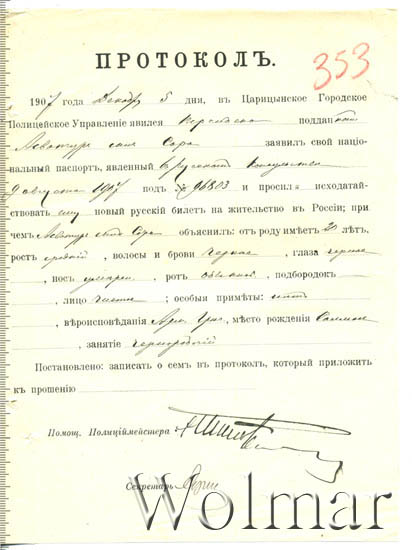 ПРОТОКОЛЪ.
353
1907 года Декабр 5 дня, въ Царицынское Городское
Полицейское Управленіе явился поддан
заявилъ свой націо-
нальный паспортъ, явленный в русском
9 августа 1907 подъ № 96803 и просилъ исходатай-
ствовать ему новый русскій билетъ на жительство въ Россіи; при
чемъ объяснилъ: отъ роду имѣетъ лѣтъ,
ростъ средній, волосы и брови черные, глаза черные
, носъ умѣрен, ротъ обыкнов, подбородокъ
, лицо чистое; особыя примѣты: нѣтъ
, вѣроисповѣданія Арм. Григ., мѣсто рожденія
, занятіе чернорабочій
Постановлено: записать о семъ въ протоколъ, который приложить
къ прошенію
Помощ. Полиціймейстера
Секретарь
Wolmar